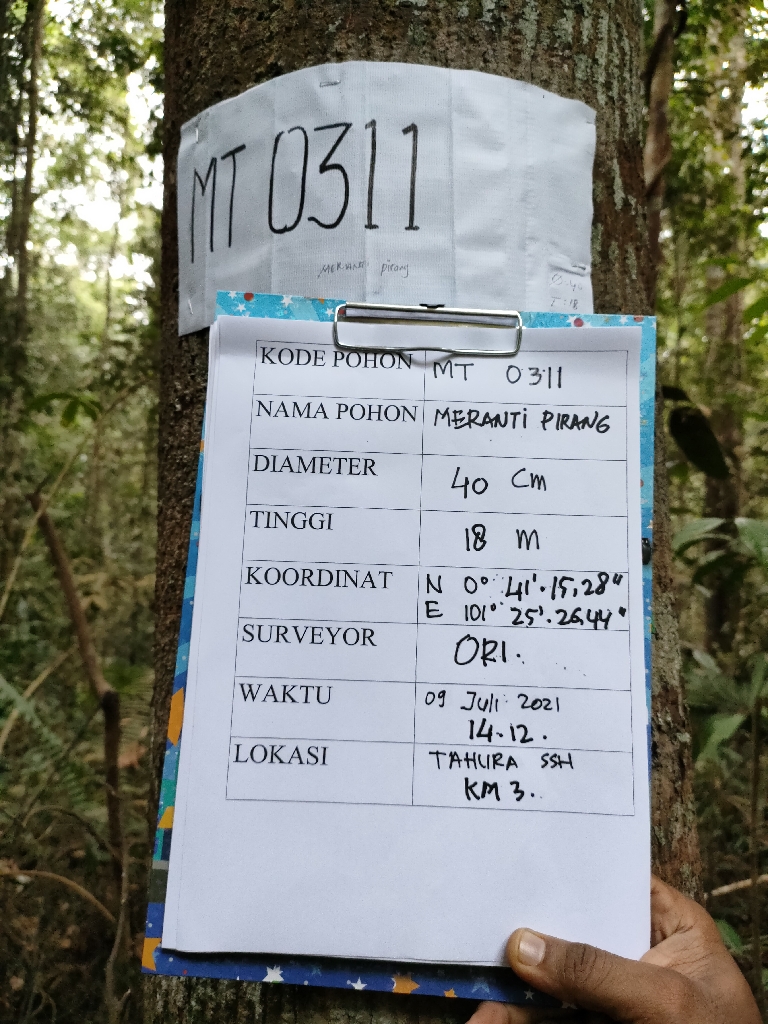 MT 0311
MERANTI pirang
T: 18
KODE POHON MT 0311
NAMA POHON MERANTI PIRANG
DIAMETER 40 Cm
TINGGI 18 m
KOORDINAT N 0° 41'.15,28"
E 101° 25'.26,44"
SURVEYOR ORI.
WAKTU 09 Juli 2021
14.12.
LOKASI TAHURA SSH
KM 3.